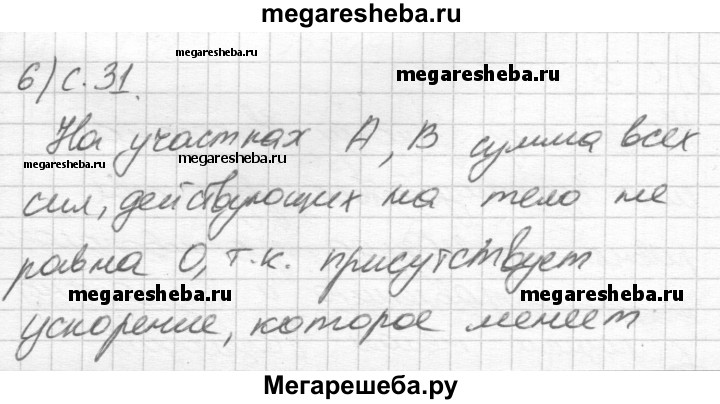 megaresheba.ru
megaresheba.ru
6) с. 31.
megaresheba.ru
На участках А, В сумма всех
megaresheba.ru
megaresheba.ru
сил, действующих на тело не
равна 0, т.к. присутствует
megaresheba.ru
megaresheba.ru
ускорение, которое меняет
Мегарешеба.ру